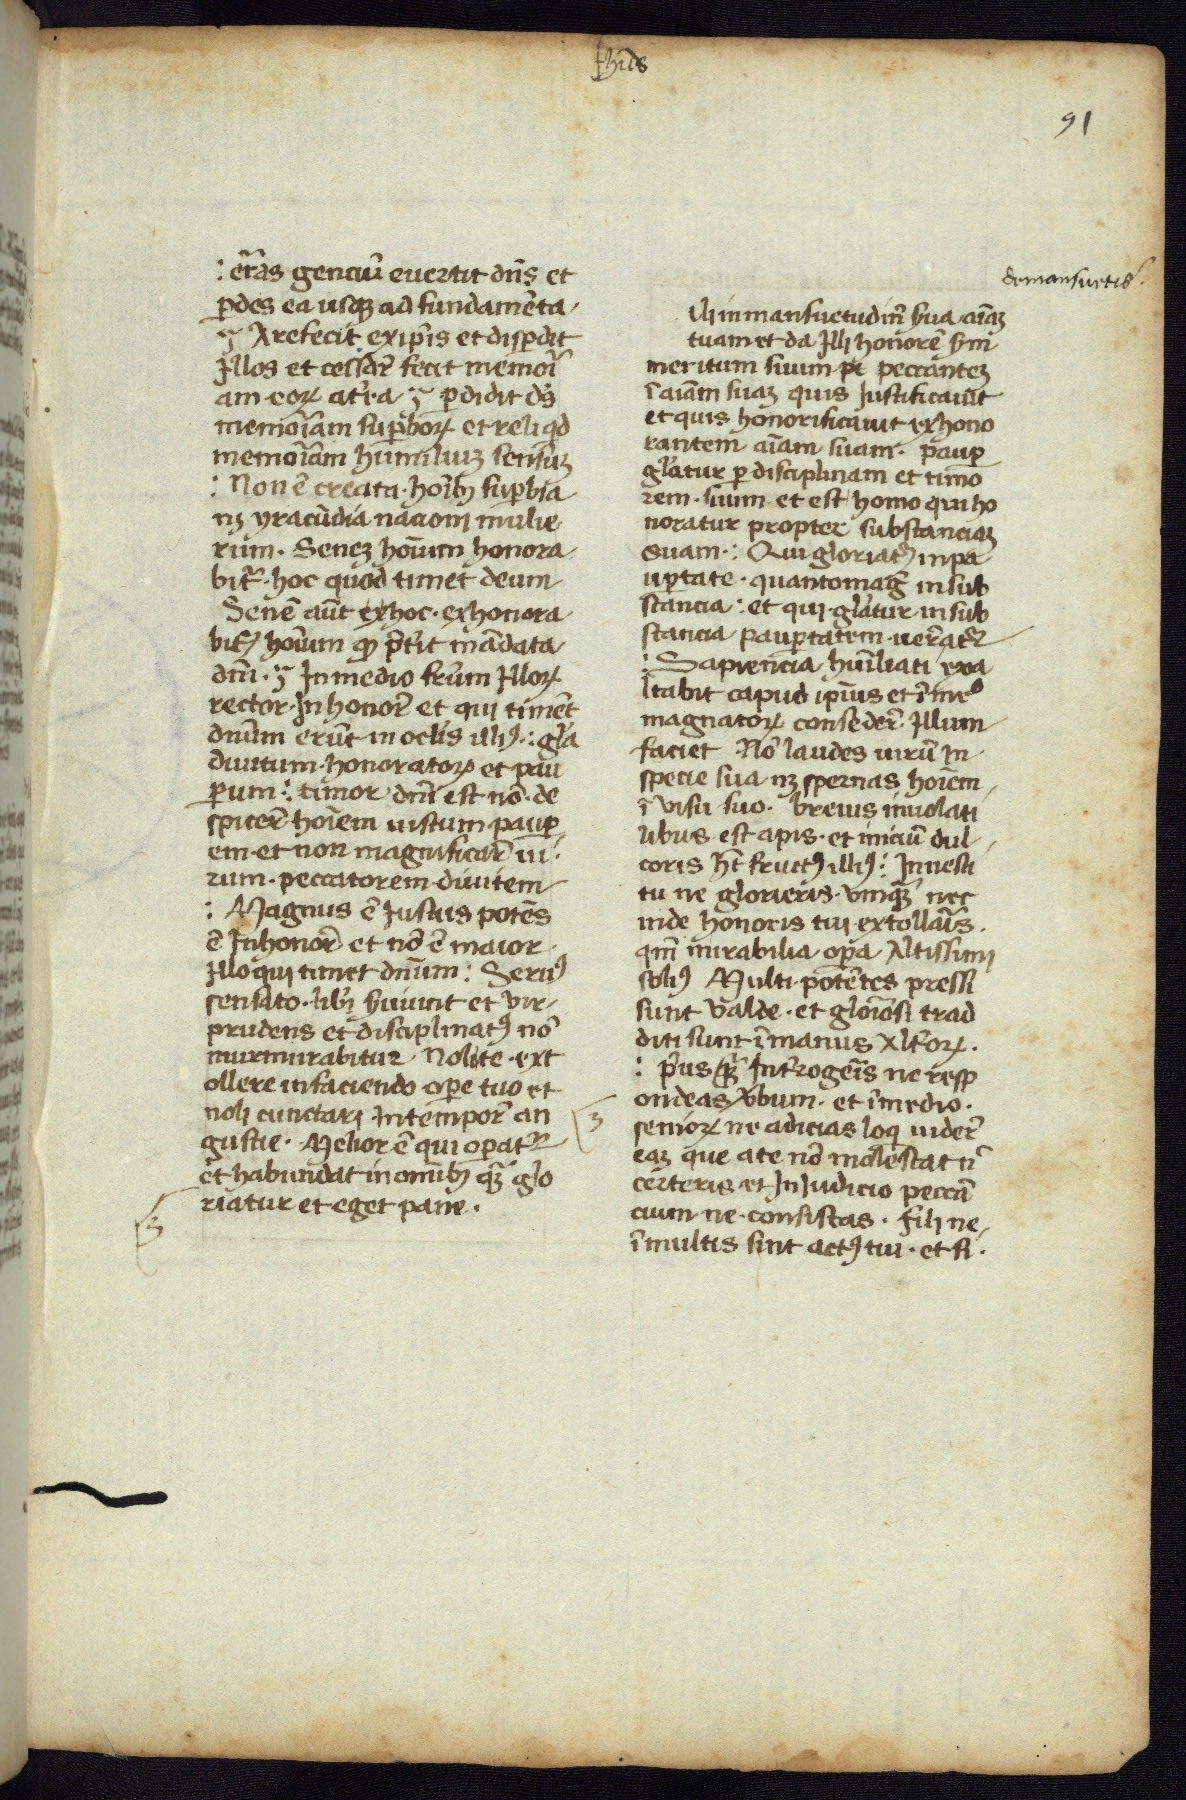 91
: t̃ras genciū evertit dn̄s et
ꝑdes ea usqꝫ ad fundamēta
Arefecit exip̄is et disꝑdit
Jllos et cessar̄ fecit memoī
am eoꝝ at̃ra ꝑdidit ds̄
memoīam suꝑboꝝ et reliqd
memoīam humiliuꝫ sensuꝫ
: Non ē creata hoībꝫ suꝑbia
nꝫ yracūdia nacioni mulie
rum. Seneꝫ hoīum honora
bit᷑ hoc quod timet deum
Senē aūt ex hoc exhonora
bit᷑ hoīum
dn̄i. In medio fr̄um Jlloꝝ
rector In honor̄ et qui timēt
dnūm erūt in oclīs illiꝰ : glā
divitum honoratoꝝ et pau
ꝑum : timor dn̄i est nō de
spicer̄ hoīem iustum pauꝑ
em et non magnificar̄ vi
rum peccatorem divitem
: Magnus ē Justus potēs
ē Jnhonor̄ et nō ē maior
Jllo qui timet dnūm : Servꝰ
sensato lib̄i s̄viunt et vir
prudens et disciplinatꝰ nō
murmurabitur Nolite ext
ollere in faciendo oꝑe tuo et
noli cunctari Jn tempor̄ an
gustie. Melior ē qui oꝑat᷑
et habundat in omībꝫ qͣꝫ glo
riatur et eget pane.
de mansuetis
ili in mansuetudīn s̄va aīaꝫ
tuam et da Jlli honorē s̄m
meritum suum peccanteꝫ
ī aīam suaꝫ quis Justificavit
et quis honorificavit exhono
rantem aīam suam. pauꝑ
glātur ꝑ disciplinam et timo
rem suum et est homo qui ho
noratur propter substanciaꝫ
suam : Qui gloriat᷑ in pa
uꝑtate quantomaḡ in sub
stancia : et qui glātur in sub
stancia pauꝑtatem ver̄at᷑
: Sapiencia hum̄liati exa
ltabit capud ip̄ius et ī meº
magnatoꝝ conseder̄ Jllum
faciet Nō laudes virū In
specie sua nꝫ spernas hoīem
ī visu suo. brevis in volati
libus est apis et iniciū dul
coris hēt fructꝰ illiꝰ : Jn vesti
tu ne glorieris unqͣꝫ nec
inde honoris tui extollar̄s
qm̄ mirabilia oꝑa Altissimi
solꝰ Multi potētes pressi
sunt valde et gloīosi trad
diti sunt ī manus Alt̄oꝝ
: pīus qͣꝫ Int̄rogēis ne resp
ondeas v̄bum et ī medio
senioꝝ ne adicias loq vider̄
eaꝫ que a te nō molestat nˡ
certeris et Jn Judicio peccā
cium ne consistas. Fili ne
ī multis sint actꝰ tui et si